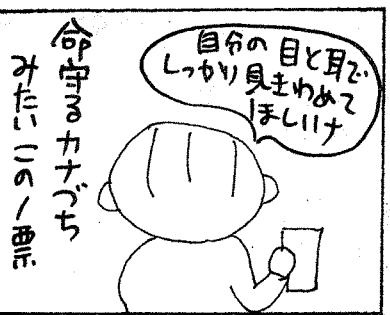 自分の目と耳で
しっかり見きわめて
ほしいナ
命守るカナづち
みたいこの1票